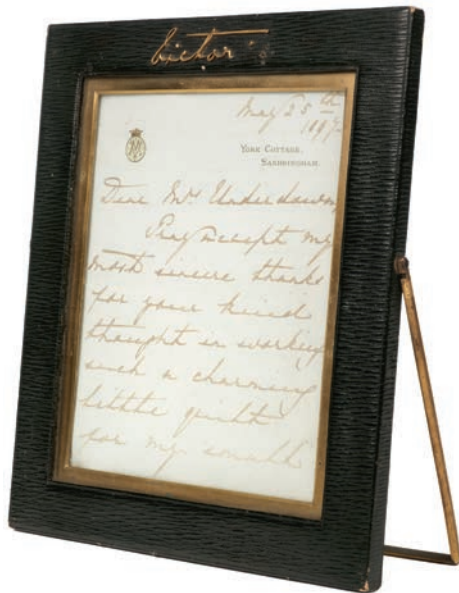 Victor
May 25th
1897
YORK COTTAGE,
SANDRINGHAM.
Dear Mrs Underdown,
Pray accept my
most sincere thanks
for your kind
thought in working
such a charming
little quilt
for my small